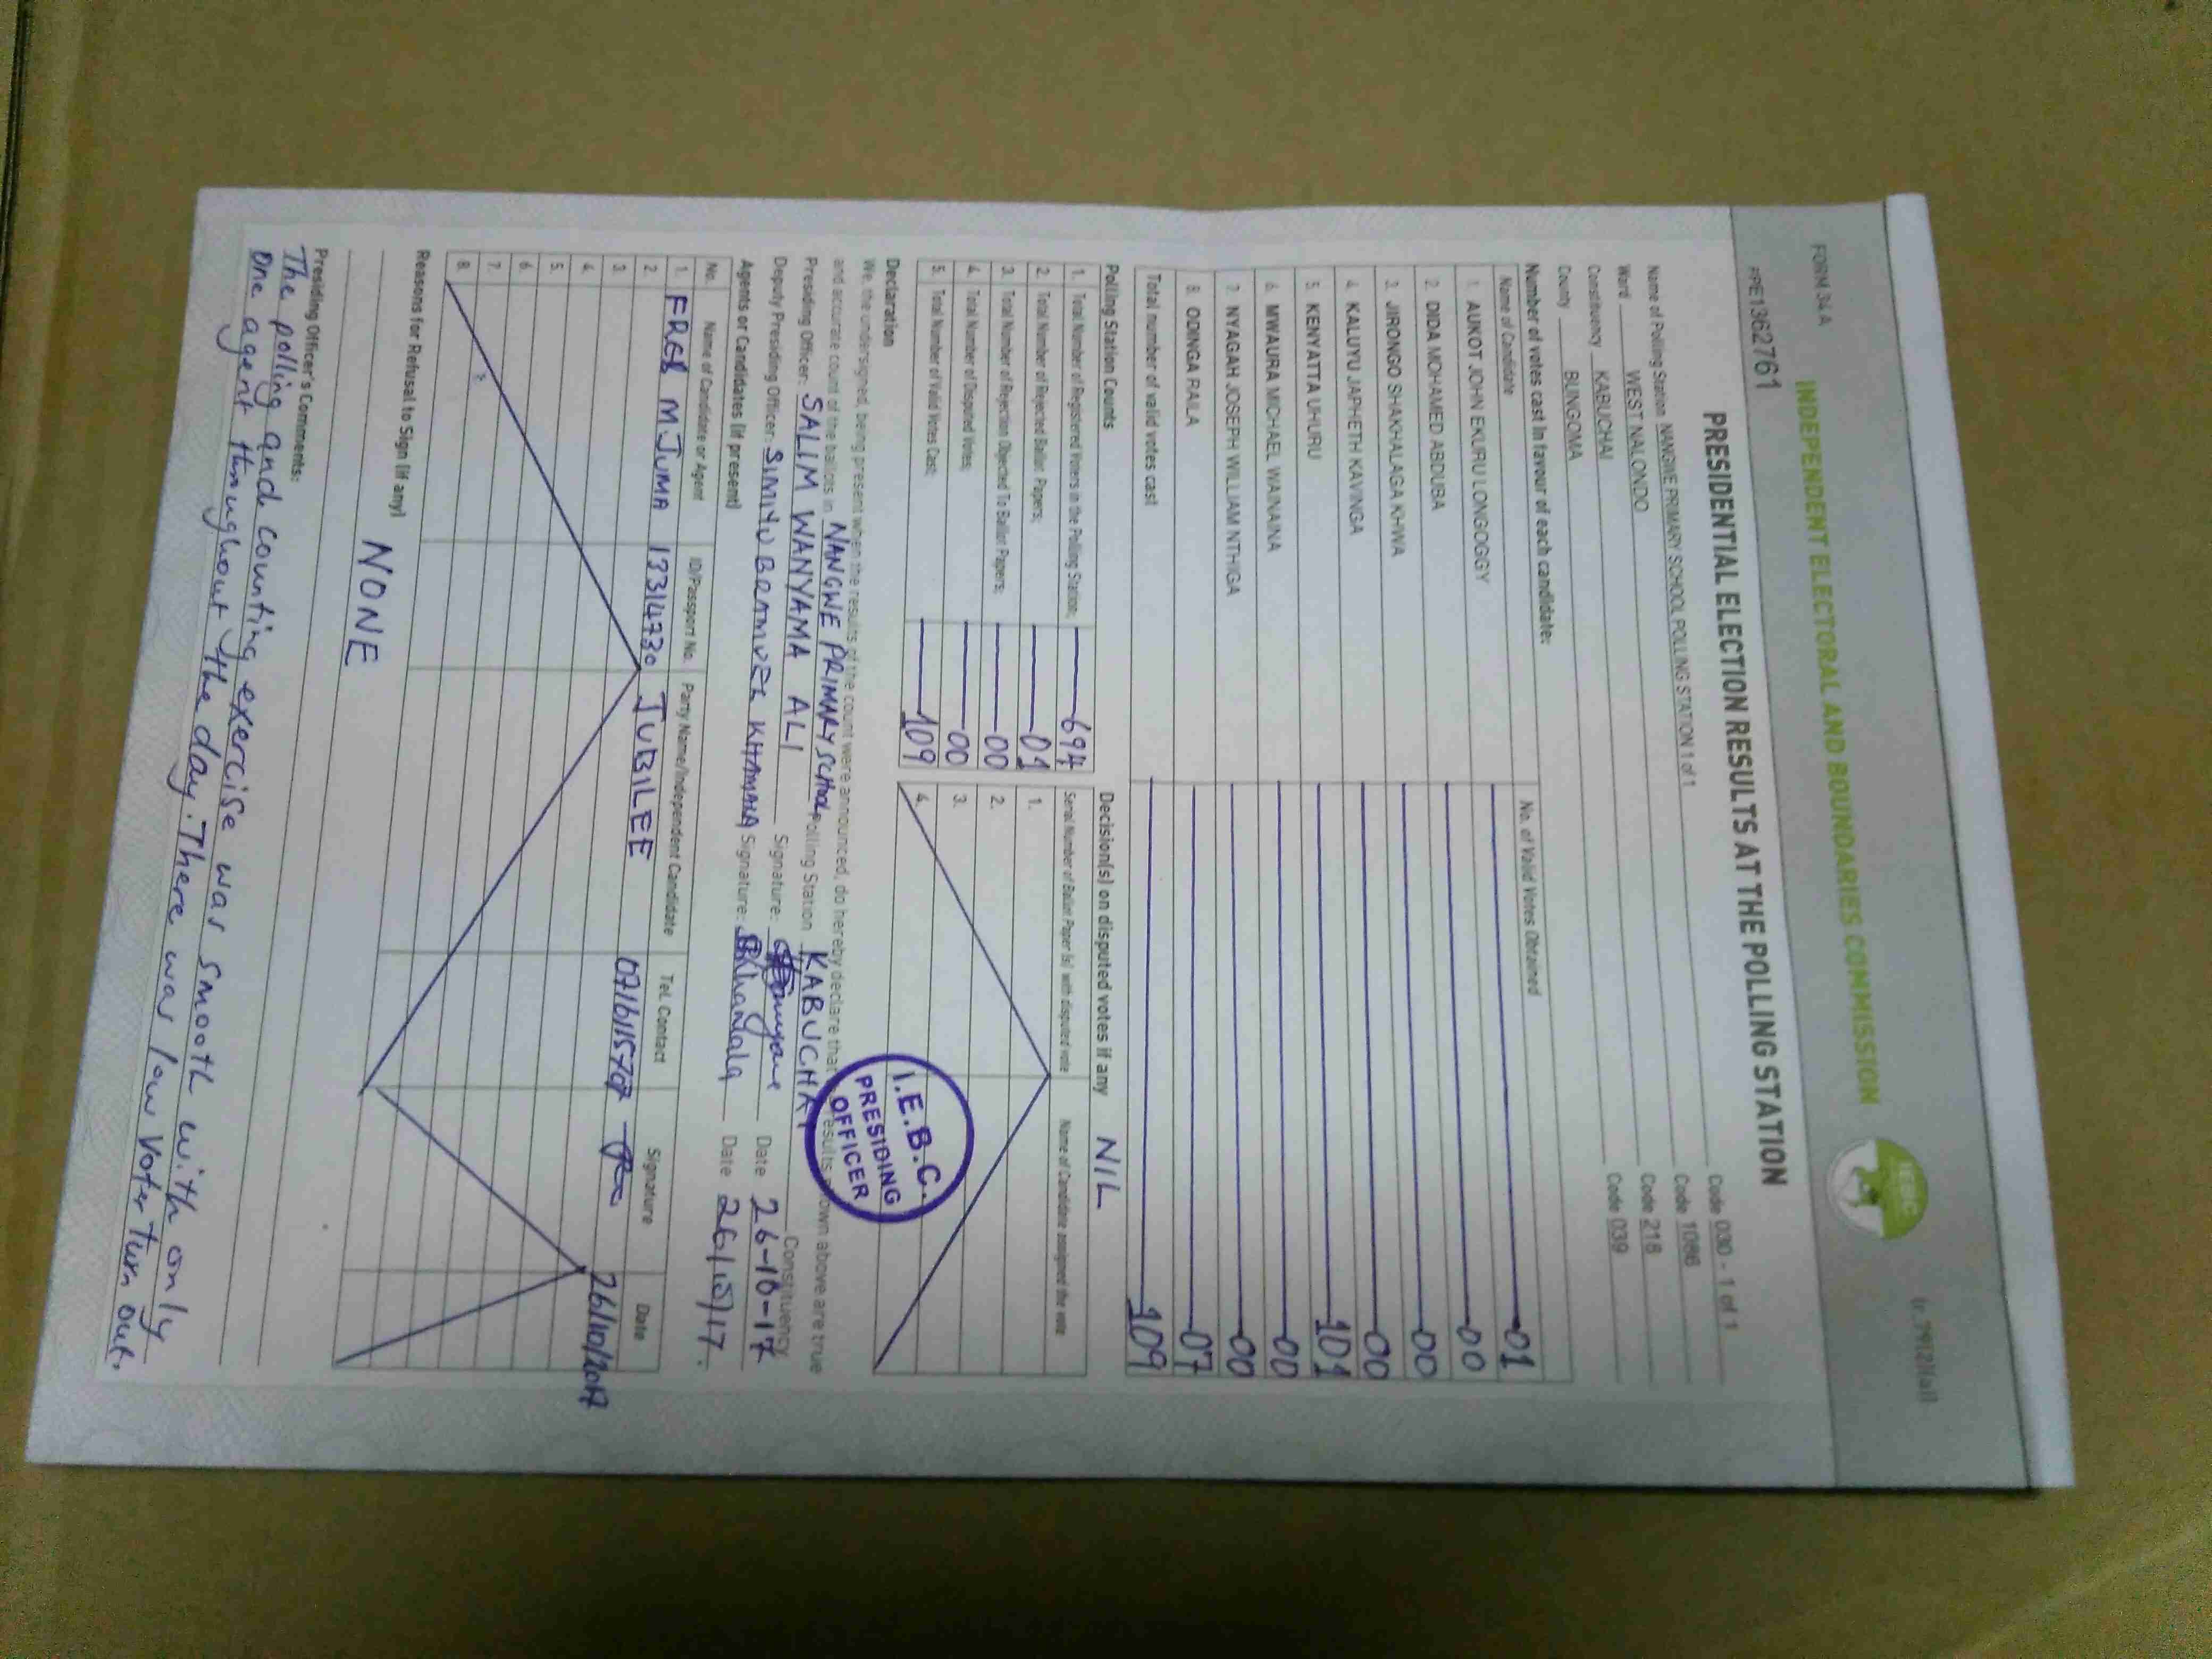 FORM 34 A
INDEPENDENT ELECTORAL AND BOUNDARIES COMMISSION
IEBC
PPE1362761
PRESIDENTIAL ELECTION RESULTS AT THE POLLING STATION
Name of Polling Station NANGWE PRIMARY SCHOOL POLLING STATION 1 of 1 Code 030 - 1 of 1
Ward WEST NALONDO Code 1086
Constituency KABUCHAI Code 218
County BUNGOMA Code 039
Number of votes cast in favour of each candidate:
Name of Candidate No. of Valid Votes Obtained
1. AUKOT JOHN EKURU LONGOGGY 01
2. DIDA MOHAMED ABDUBA 00
3. JIRONGO SHAKHALAGA KHWA 00
4. KALUYU JAPHETH KAVINGA 00
5. KENYATTA UHURU 101
6. MWAURA MICHAEL WAINAINA 00
7. NYAGAH JOSEPH WILLIAM NTHIGA 00
8. ODINGA RAILA 07
Total number of valid votes cast 109
Polling Station Counts
1. Total Number of Registered Voters in the Polling Station; 694
2. Total Number of Rejected Ballot Papers; 01
3. Total Number of Rejection Objected To Ballot Papers; 00
4. Total Number of Disputed Votes; 00
5. Total Number of Valid Votes Cast; 109
Decision(s) on disputed votes if any NIL
Serial Number of Ballot Paper (s) with disputed vote Name of Candidate assigned the vote
1.
2.
3.
4.
Declaration
We, the undersigned, being present when the results of the count were announced, do hereby declare that results own above are true
and accurate count of the ballots in NANGWE PRIMARY SCHOOL Polling Station KABUCHAI Constituency
Presiding Officer: SALIM WANYAMA ALI Signature: Date 26-10-17
Deputy Presiding Officer: SIMIYU KHAMALA Signature: Date 26/10/17.
I.E.B.C.
PRESIDING
OFFICER
Agents or Candidates (if present)
No. Name of Candidate or Agent ID/Passport No. Party Name/Independent Candidate Tel. Contact Signature Date
1. FRED M JUMA 13314730 JUBILEE 0716115707 26/10/2017
2.
3.
4.
5.
6.
7.
8.
Reasons for Refusal to Sign (if any)
NONE
Presiding Officer's Comments:
The polling and counting exercise was smooth with only
one agent throughout the day. There was low voter turn out.